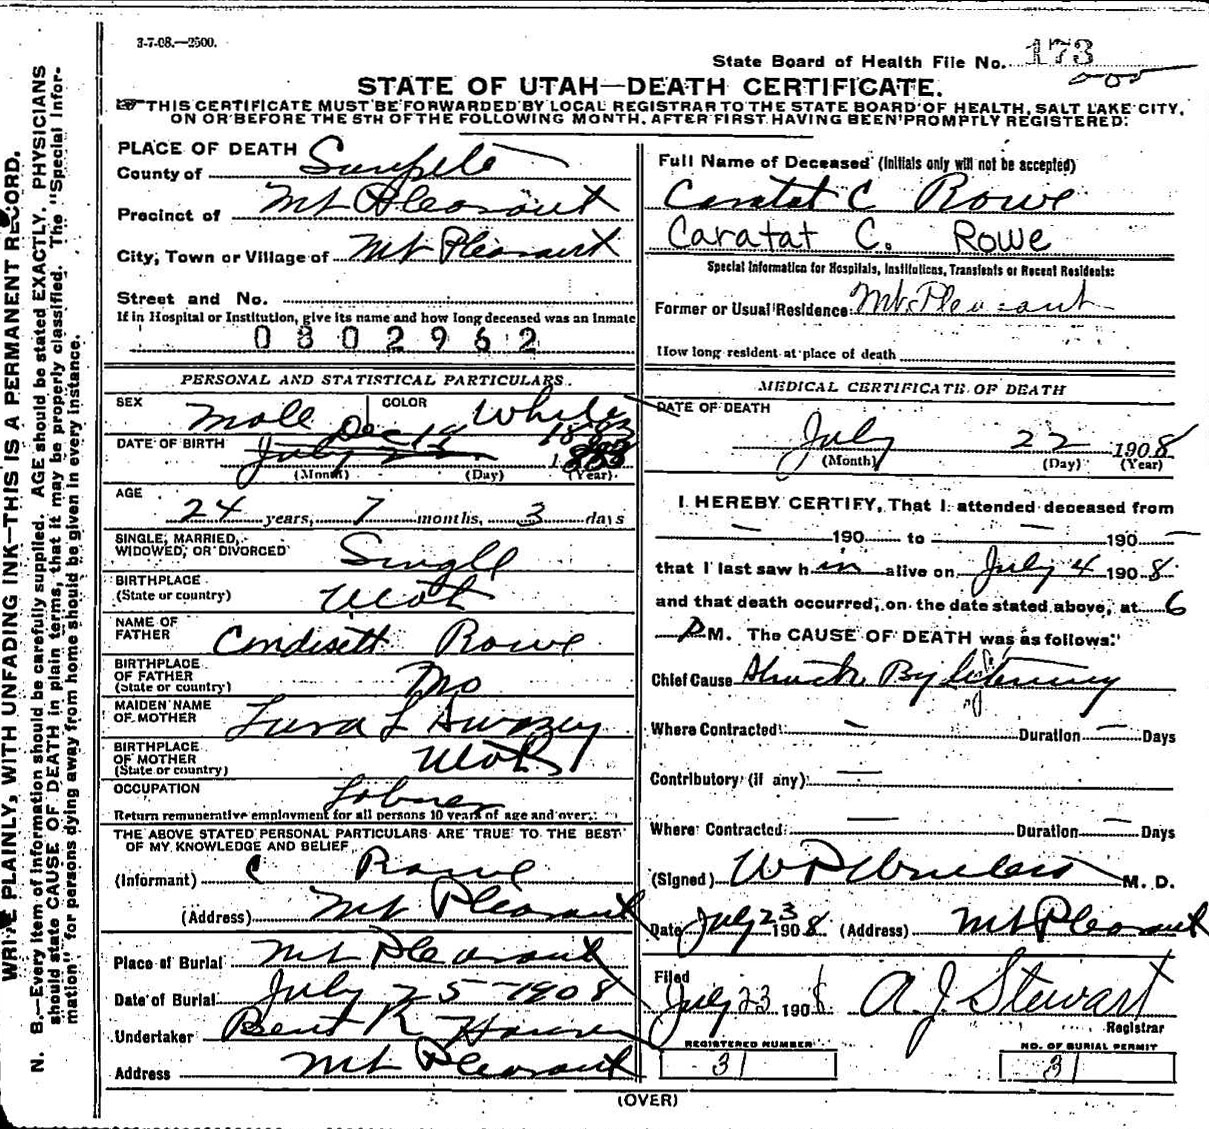 3-7-08.—2500.
State Board of Health File No. 173
STATE OF UTAH—DEATH CERTIFICATE.
THIS CERTIFICATE MUST BE FORWARDED BY LOCAL REGISTRAR TO THE STATE BOARD OF HEALTH, SALT LAKE CITY,
ON OR BEFORE THE 5TH OF THE FOLLOWING MONTH, AFTER FIRST HAVING BEEN PROMPTLY REGISTERED.
WRITE PLAINLY, WITH UNFADING INK—THIS IS A PERMANENT RECORD.
N. B.—Every item of information should be carefully supplied. AGE should be stated EXACTLY. PHYSICIANS
should state CAUSE OF DEATH in plain terms, that it may be properly classified. The "Special Infor-
mation" for persons dying away from home should be given in every instance.
PLACE OF DEATH
County of Sanpete
Precinct of Mt Pleasant
City, Town or Village of Mt Pleasant
Street and No.
If in Hospital or Institution, give its name and how long deceased was an Inmate
0302962
PERSONAL AND STATISTICAL PARTICULARS.
SEX Male COLOR White
Dec 19 1883
DATE OF BIRTH July 22
(Month) (Day) (Year)
AGE
24 years, 7 months, 3 days
SINGLE, MARRIED,
WIDOWED, OR DIVORCED Single
BIRTHPLACE
(State or country) Utah
NAME OF
FATHER Rowe
BIRTHPLACE
OF FATHER
(State or country) Mo
MAIDEN NAME
OF MOTHER L Swazey
BIRTHPLACE
OF MOTHER
(State or country) Utah
OCCUPATION
Return remunerative employment for all persons 10 years of age and over.
THE ABOVE STATED PERSONAL PARTICULARS ARE TRUE TO THE BEST
OF MY KNOWLEDGE AND BELIEF
(Informant) C Rowe
(Address) Mt Pleasant
Place of Burial Mt Pleasant
Date of Burial July 25 1908
Undertaker Bent R Hansen
Address Mt Pleasant
Full Name of Deceased (Initials only will not be accepted)
Caratat C Rowe
Caratat C. Rowe
Special Information for Hospitals, Institutions, Transients or Recent Residents:
Former or Usual Residence Mt Pleasant
How long resident at place of death
MEDICAL CERTIFICATE OF DEATH
DATE OF DEATH
July 22 1908
(Month) (Day) (Year)
I HEREBY CERTIFY, That I attended deceased from
— 190 to — 190 —
that I last saw him alive on July 4 1908
and that death occurred, on the date stated above, at 6
P M. The CAUSE OF DEATH was as follows:
Chief Cause Struck By litening
Where Contracted — Duration — Days
Contributory (if any) —
Where Contracted — Duration — Days
(Signed) W P M. D.
Date July 23 1908 (Address) Mt Pleasant
Filed
July 23 1908 A. J. Stewart
Registrar
REGISTERED NUMBER NO. OF BURIAL PERMIT
31 31
(OVER)